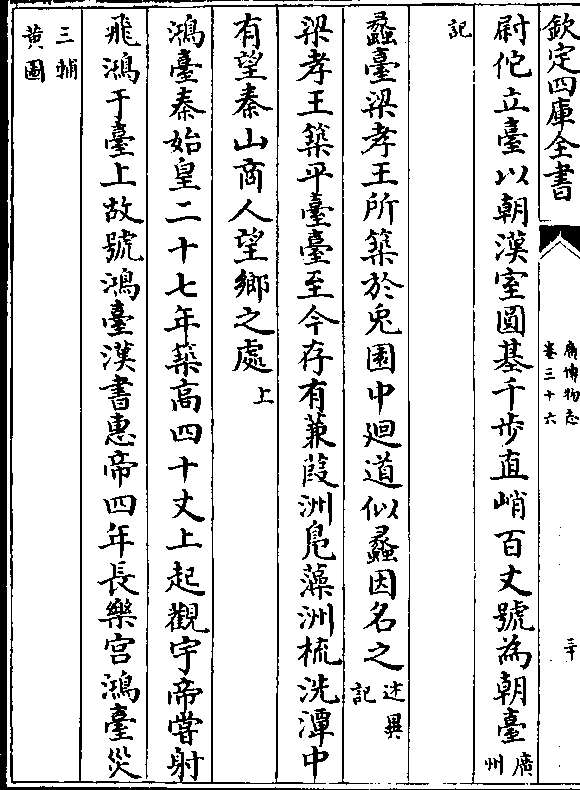 欽定四庫全書
廣博物志
卷三十六
三十
尉佗立臺以朝漢室圓基千步直峭百丈號為朝臺廣州
記
蠡臺梁孝王所築於兎園中廻道似蠡因名之述異記
梁孝王築平臺臺至今存有蒹葭洲鳬藻洲梳洗潭中
有望秦山商人望鄉之處上
鴻臺秦始皇二十七年築高四十丈上起觀宇帝嘗射
飛鴻于臺上故號鴻臺漢書惠帝四年長樂宫鴻臺災
三輔
黄圖